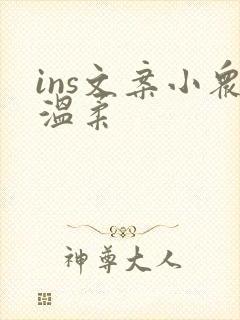 ins文案小众
温柔
神尊大人